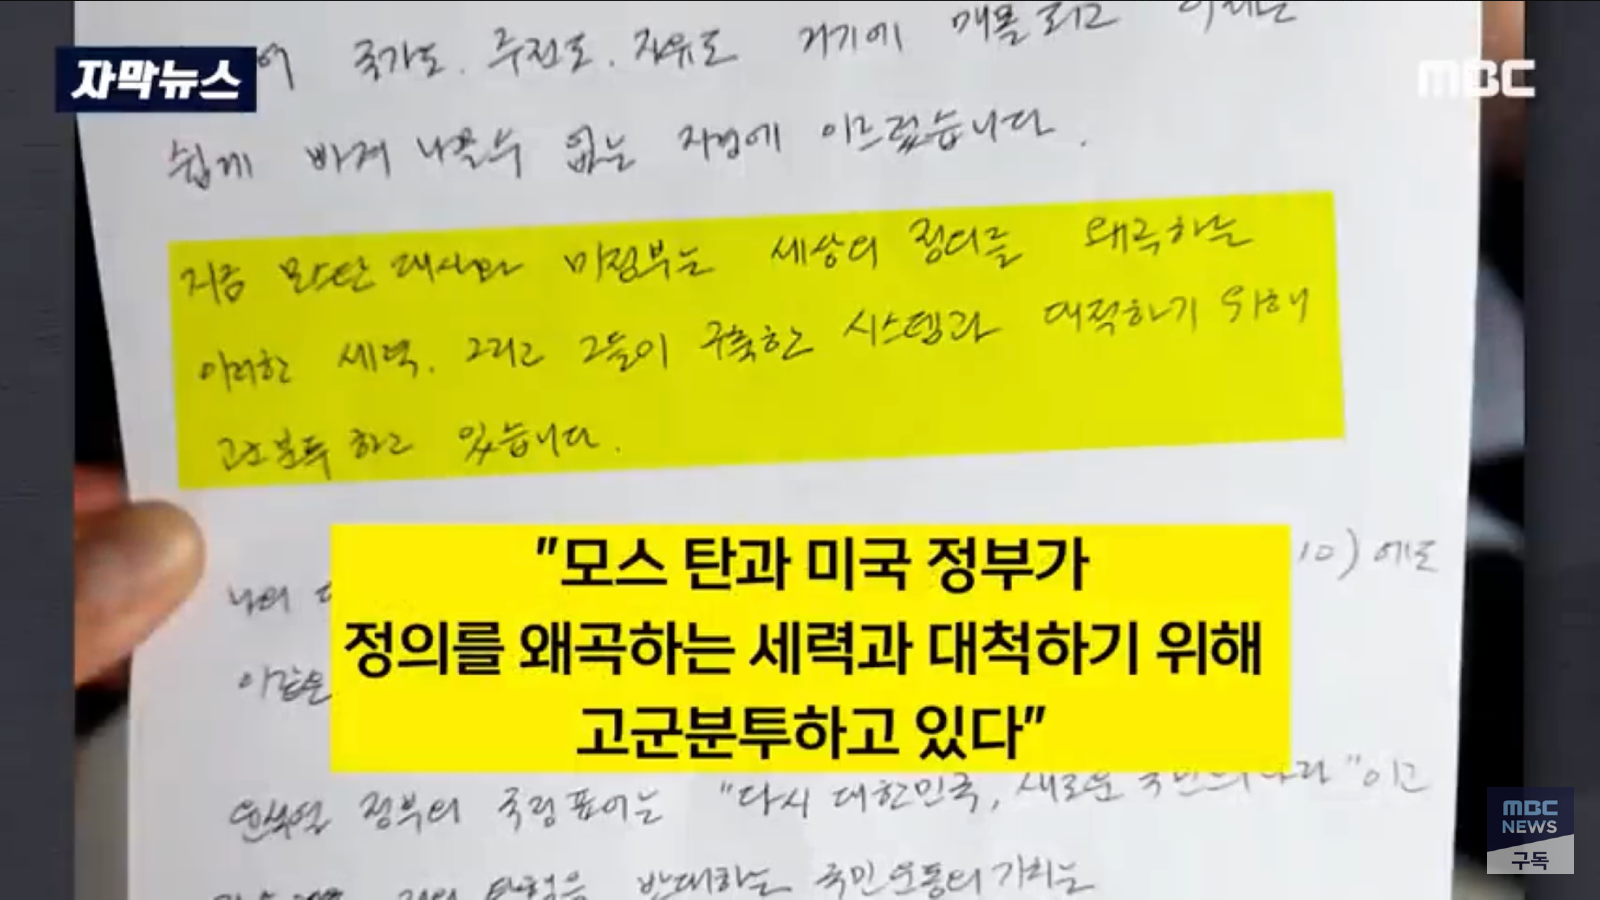 자막뉴스
MBC
국가도. 주권도. 자유도 거기에 매몰되고 이제는
쉽게 빠져 나올수 없는 지경에 이르렀습니다.
지금 모스탄 대사와 미정부는 세상의 정의를 왜곡하는
이러한 세력. 그리고 그들이 구축한 시스템과 대척하기 위해
고군분투 하고 있습니다.
"모스 탄과 미국 정부가
정의를 왜곡하는 세력과 대척하기 위해
고군분투하고 있다"
10) 에도
나의
이같은
윤석열 정부의 국정 표어는 "다시 대한민국, 새로운 국민의 나라" 이고
반대하는 국민운동의 기치는
MBC
NEWS
구독